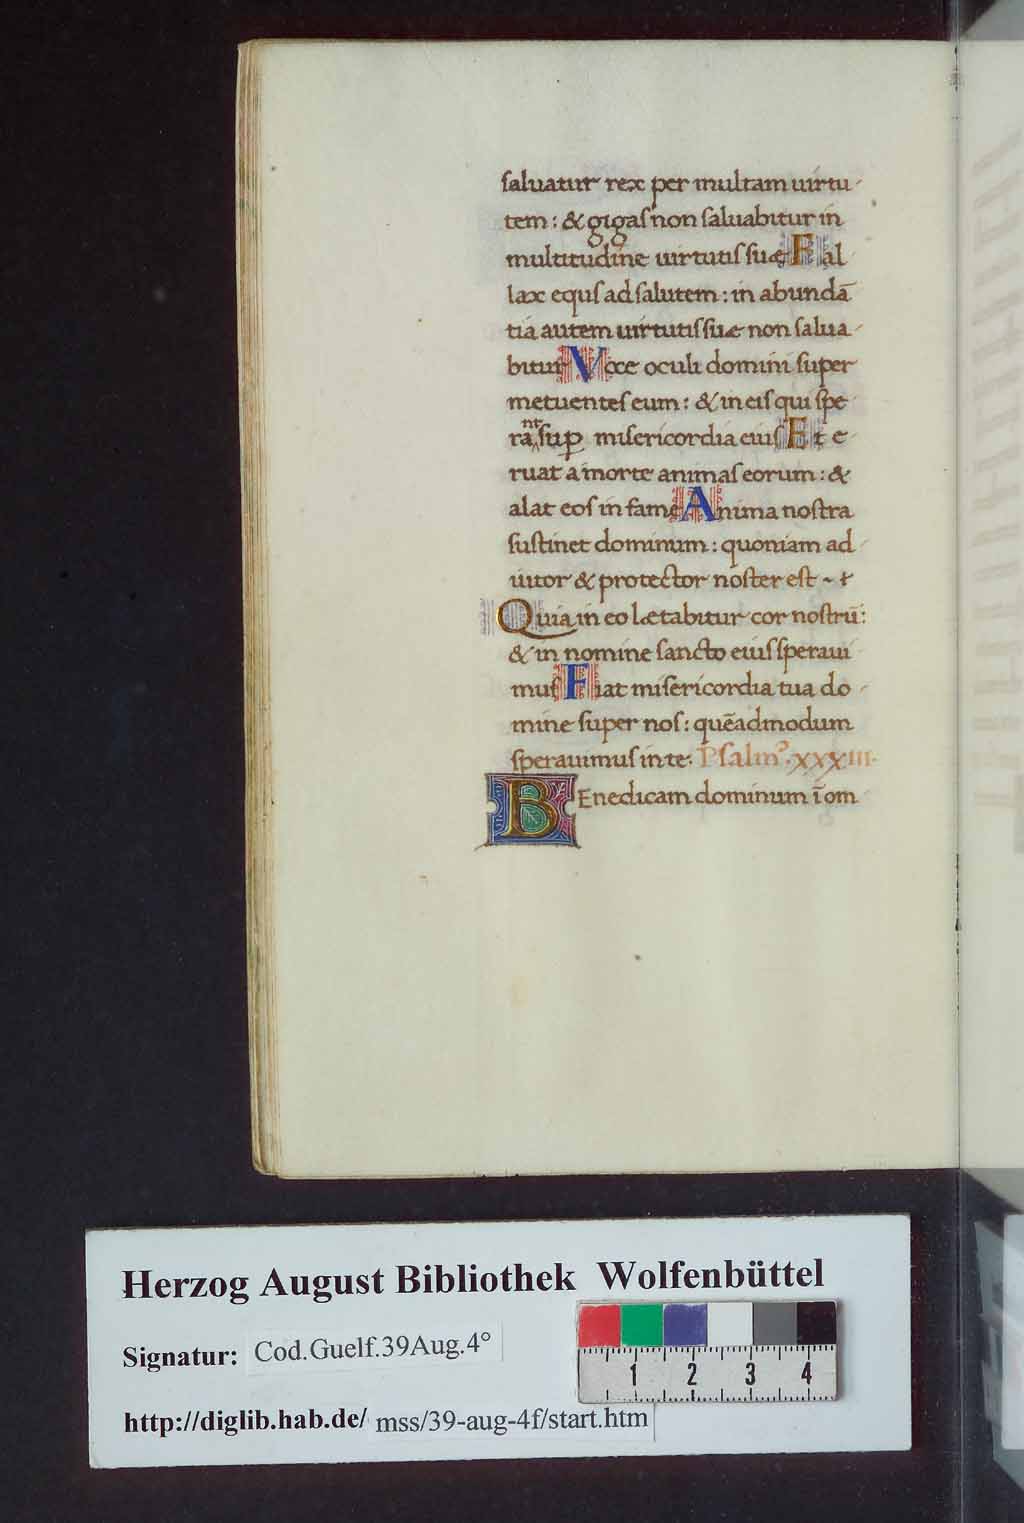 saluatur rex per multam uirtu-
tem: & gigas non saluabitur in
multitudine uirtutis suæ Fal
lax equs ad salutem: in abundā
tia autem uirtutis suæ non salua-
bitur Voce oculi domini super
metuentes eum: & in eis qui spe
raֽⁿᵗ sup̱ misericordia eius Et e-
ruat a morte animas eorum: &
alat eos in fame Anima nostra
sustinet dominum: quoniam ad-
iutor & protector noster est
Quia in eo lætabitur cor nostrū:
& in nomine sancto eius speraui-
mus Fiat misericordia tua do-
mine super nos: quēadmodum
sperauimus in te. Psalmꝰ. xxxiii.
BEnedicam dominum ī om
Herzog August Bibliothek Wolfenbüttel
Signatur: Cod.Guelf.39Aug.4°
1 2 3 4
http://diglib.hab.de/ mss/39-aug-4f/start.htm